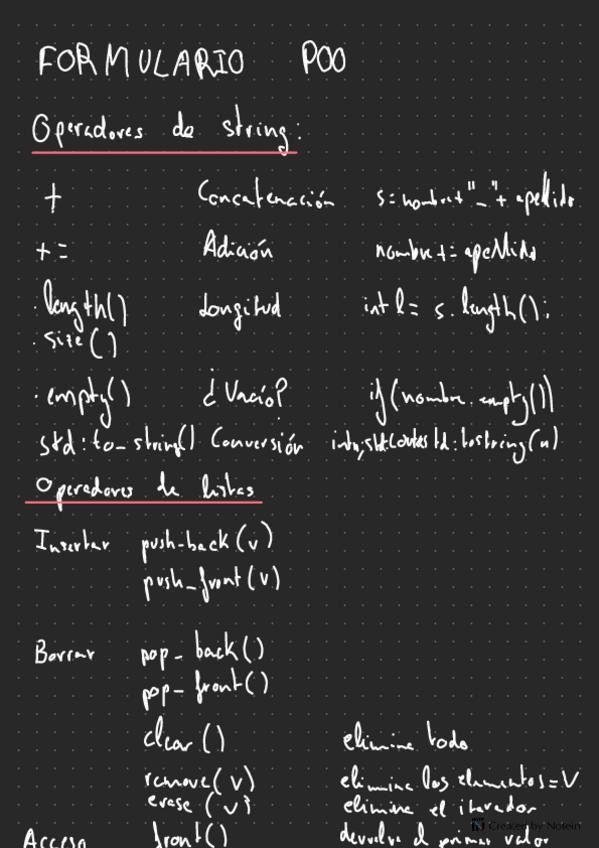 FORMULARIO POO
Operadores de string:
+ Concatenación s=nombre+"_"+apellido
+= Adición nombre+=apellido
.length() Longitud int l= s.length();
.size()
.empty() ¿Vacío? if(nombre.empty())
std::to_string() Conversión std::to string(n)
Operadores de listas
Insertar push-back(v)
push_front(v)
Borrar pop_back()
pop_front()
clear() elimina todo
remove(v) elimina los elementos=V
erase(v) elimina el iterador
Acceso front() devuelve el primer valor
Created by Notein